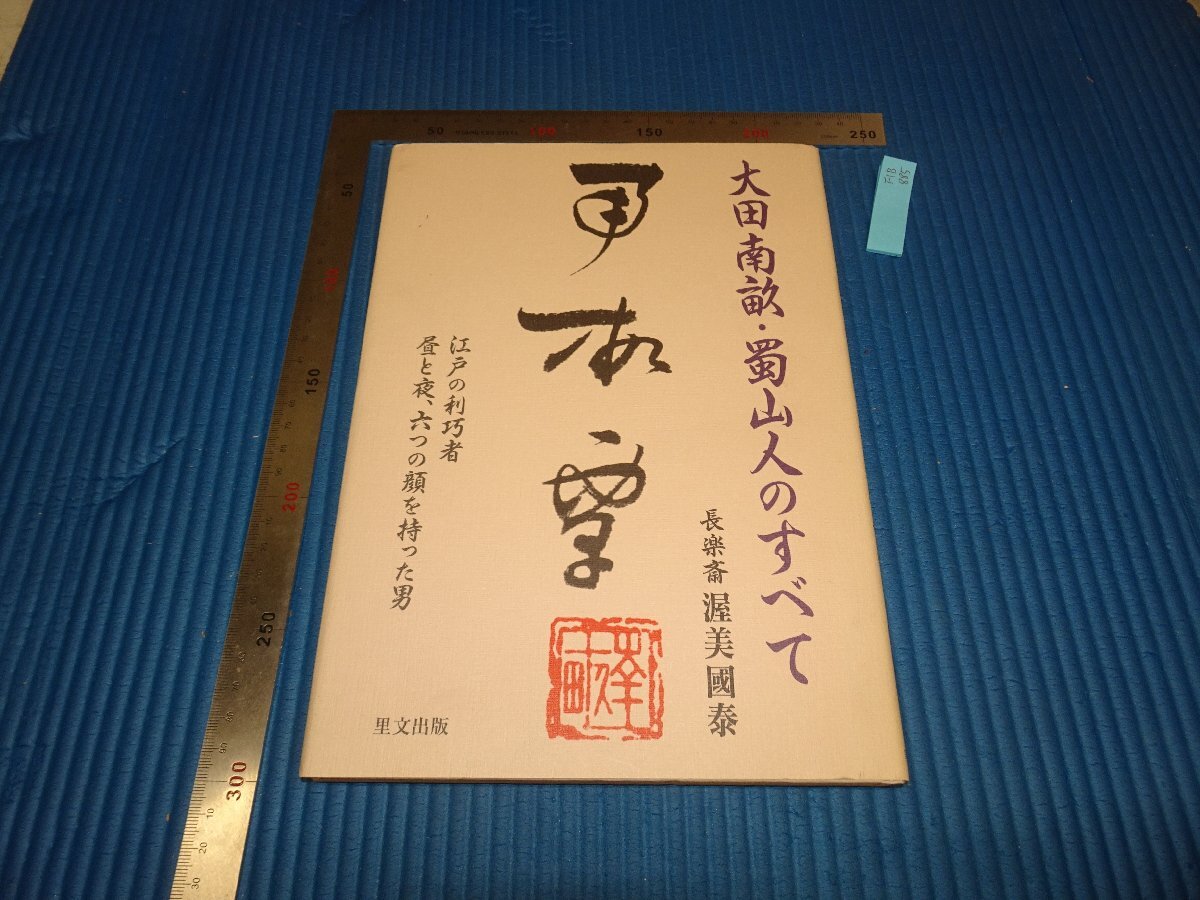 大田南畝・蜀山人のすべて
長楽斎 渥美國泰
江戸の利巧者
昼と夜、六つの顔を持った男
里文出版
50
100
150
200
250
50
100
150
200
250
300